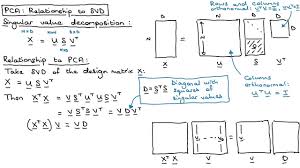 PCA: Relationship to SVD
Singular value decomposition:
N×D N×N N×D D×D
X = U S V^T
Relationship to PCA:
Take SVD of the design matrix X:
X = U S V^T
Then X^T X = V S^T U^T U S V^T
= V S^T S V^T = V D V^T
(X^T X) V = V D
D = S^T S
Diagonal with squares of singular values
Rows and columns orthonormal: U^T U = I
Columns orthonormal:
U^T U = I
X = U S V^T
X^T X V = V D